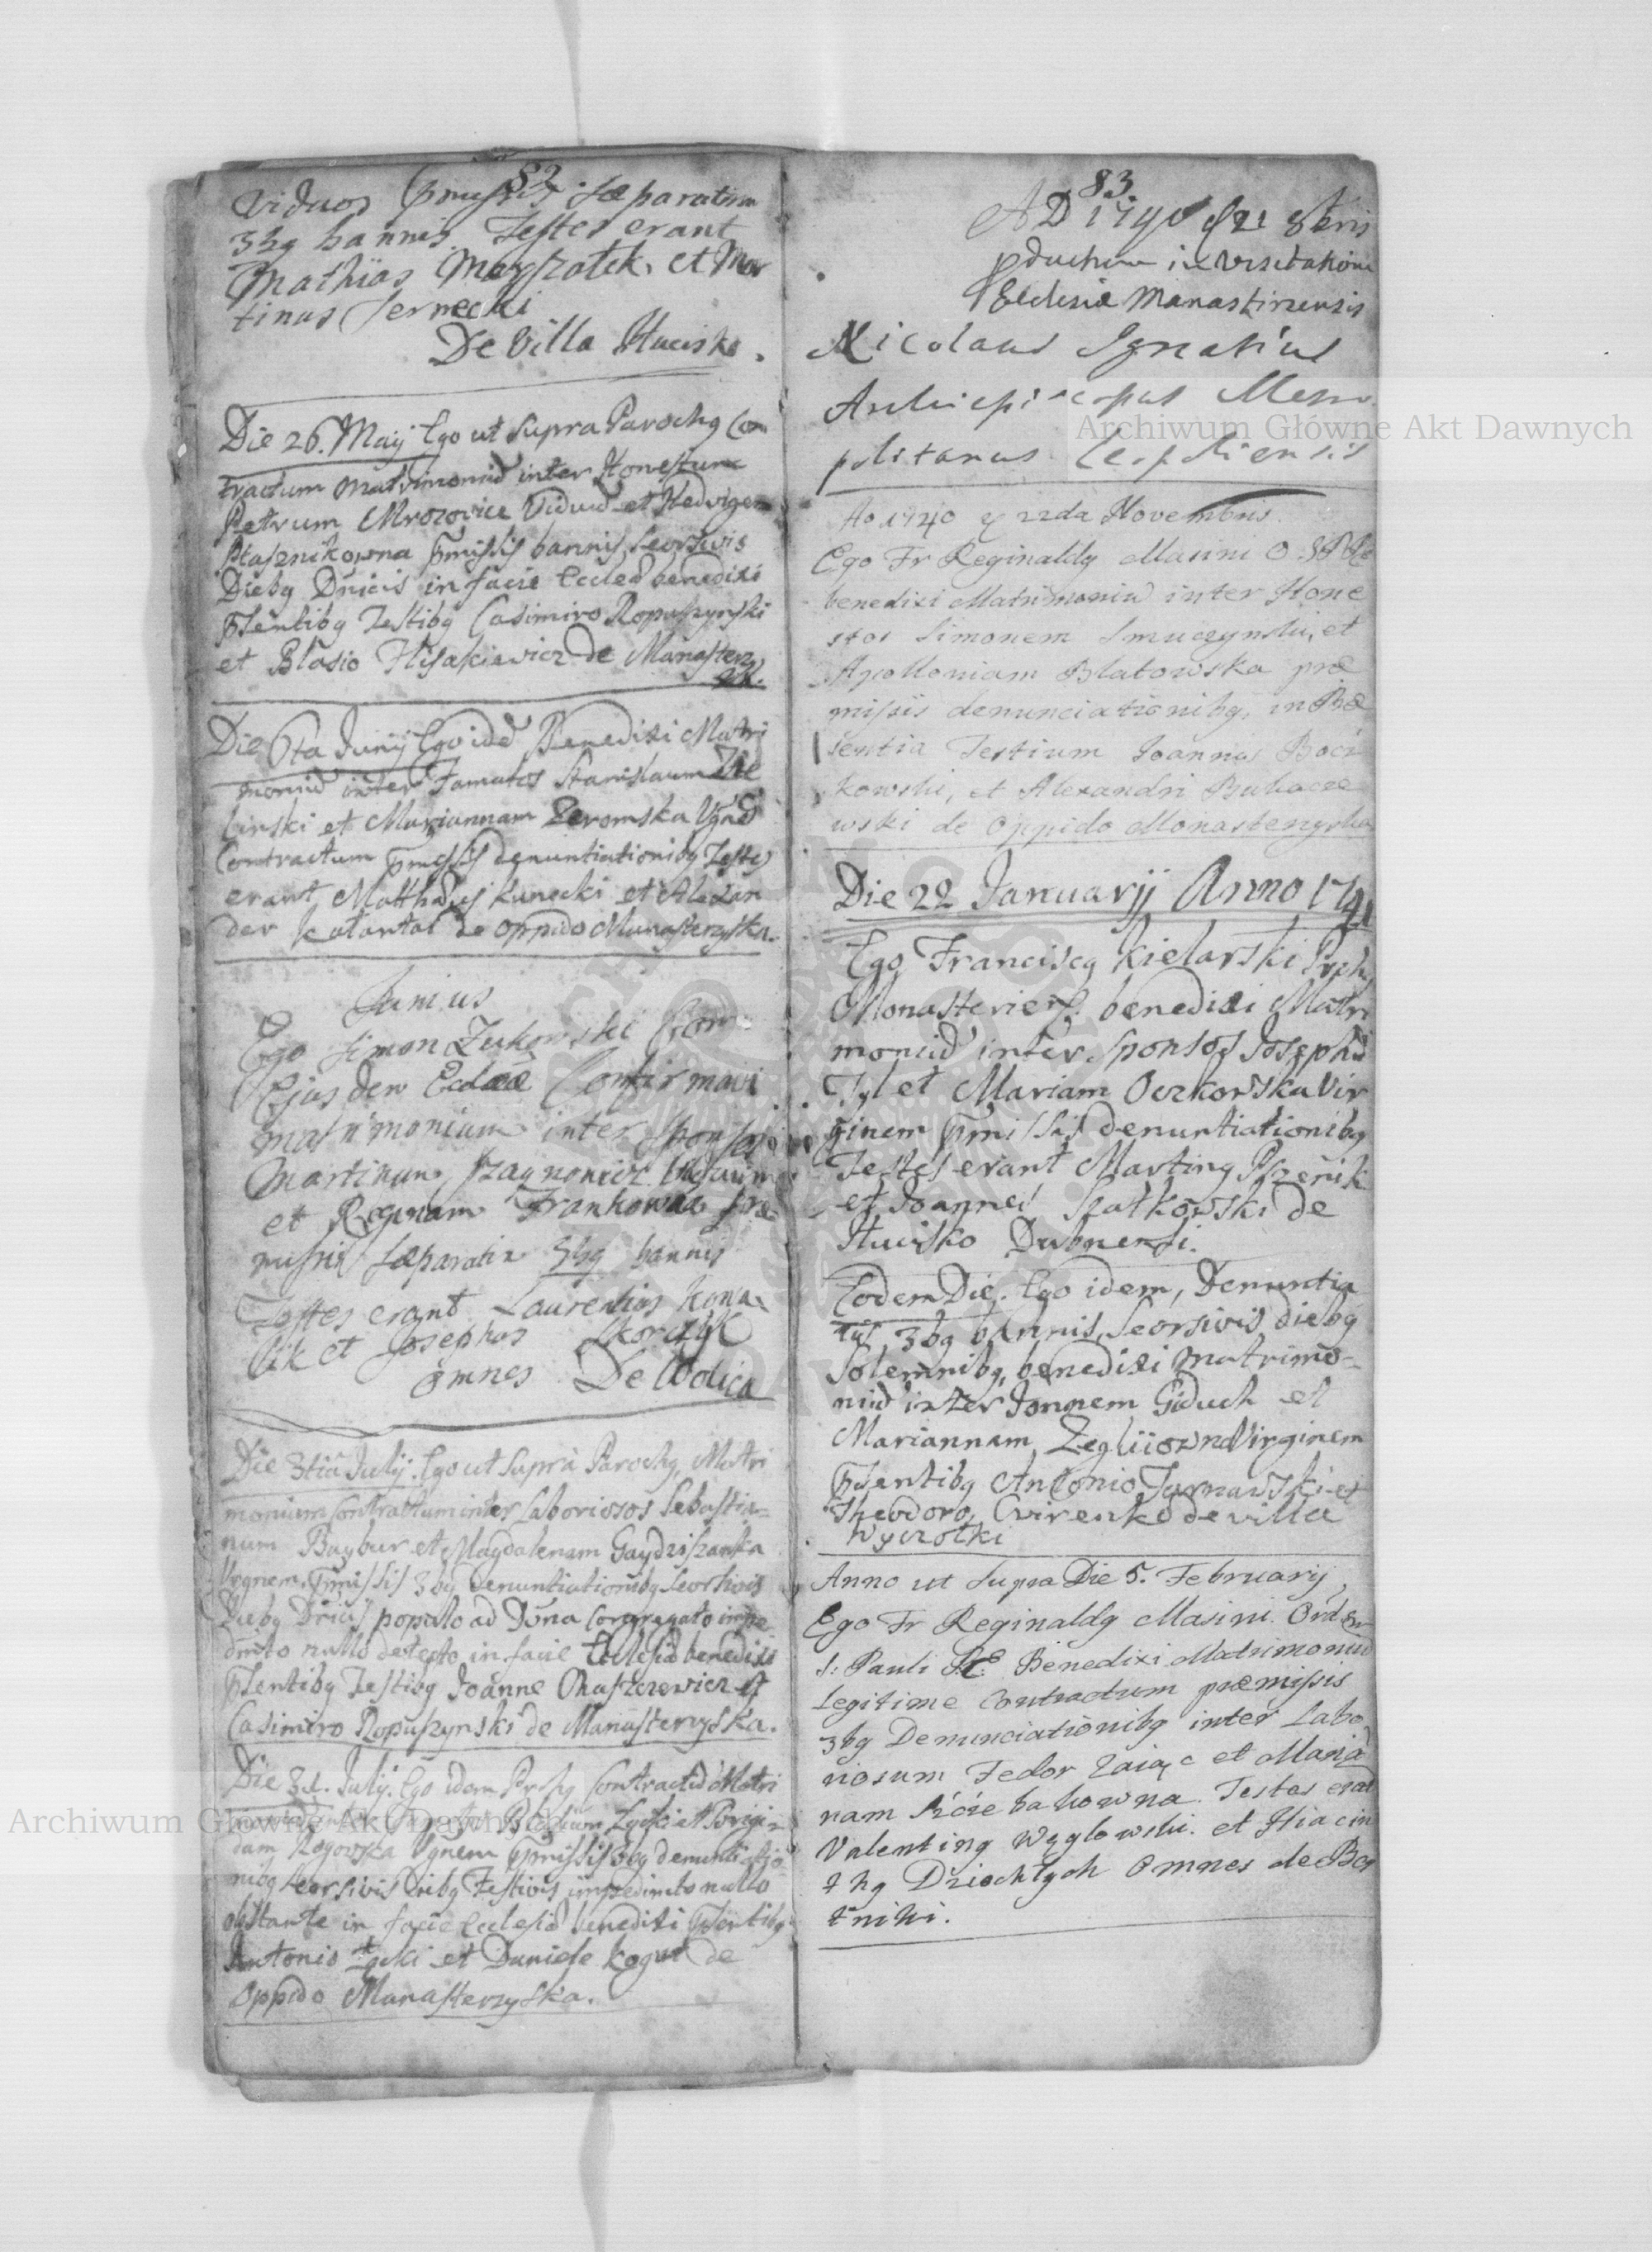 82
viduos pmissis separatim
3bg bannis. Testes erant
Mathias Mayszatek, et Mar
tinus Sernecki
De Villa Hucisko.
Die 26. Maij Ego ut supra Parochg Con
tractum Matrimoniu inter Honestum
Petrum Mrozowicz Viduu et Hedvigem
Ptasznikowna pmissis bannis seorsivis
Diebg Dnicis in facie Eccleae benedixi
psentibg Testibg Casimiro Ropuszynski
et Blasio Hisakiewicz de Manasterz
Die 6ta Junij Ego ide Benedixi Matri
moniu inter Famatos Stanislaum
et Mariannam Zeromska
Contractum pmissis denuntiationibg Testes
erant Matthaeus Kunecki et Alexan
der de oppido Manasterzyska.
Junius
Ego Simon Zukowski Com
Ejusdem Eccleae Confirmavi
matrimonium inter Sponsos
Martinum
et Reginam Frankowna prae
missis separatim 3bg bannis
Testes erant Laurentius Kowa
lik et Josephus Skorczyk
omnes De Wolica
Die 3tia Julij. Ego ut supra Parochg, Matri
monium Contractum inter Laboriosos Sebastia=
num Baybur et Magdalenam
Vrgnem, pmissis 3bg denuntiationibg seorsivis
Diebg Dnicis populo ad Dona Congregato impe
dmto nullo detecto in facie Ecclesiae benedixi
psentibg Testibg Joanne et
Casimiro Ropuszynski de Manasterzyska.
Die 31. Julij. Ego idem Prchg Contractu Matri
Rogowska Vgnem pmissis 3bg denuntiatio
nibg seorsivis festivis impedimto nullo
obstante in facie Ecclesiae benedixi psentibg
Antonio et Daniele Kogut de
Oppido Manasterzyska.
83.
AD 1740 d 21 8bris
pductum in visitatione
Ecclesiae Manastirzensis
Nicolaus Ignatius
Archiepiscopus Metro
politanus Leopoliensis
Ao 1740 22da Novembris.
Ego Fr Reginaldg Masini O S P
benedixi Matrimoniu inter Hone
stos Simonem Smuczynski, et
Apolloniam Blatowska prae
missis denunciationibg, in Prae
sentia Testium Joannis Boci
kowski, et Alexandri Bukacze
wski de Oppido Monasterzyska
Die 22 Januarij Anno 1741
Ego Franciscg Kielarski Prch
Monasterien. benedixi Matri
moniu inter Sponsos Josephu
Tyl et Mariam Oczkowska Vir
ginem pmissis denuntiationibg
Testes erant Marting Pszenik
et Joannes Szatkowski de
Hucisko Dubnensi.
Eodem Die. Ego idem, Denuntia
tis 3bg bannis, seorsivis diebg
Solemnibg, benedixi Matrimo=
niu inter Joannem Giduch et
Mariannam Virginem
psentibg Antonio Tarnawski et
Theodoro Cwirenko de villa
Wyczolki
Anno ut supra Die 5. February,
Ego Fr Reginaldg Masini Ord
S: Pauli P.E. Benedixi Matrimoniu
Legitime Contractum praemissis
3bg Denunciationibg inter Labo
riosum Fedor Zaiąc et Maria
nam Testes erant
Valenting Węglowski. et Hiacin
thg Dziochtych Omnes de Ber
tniki.
Archiwum Główne Akt Dawnych
Archiwum Główne Akt Dawnych